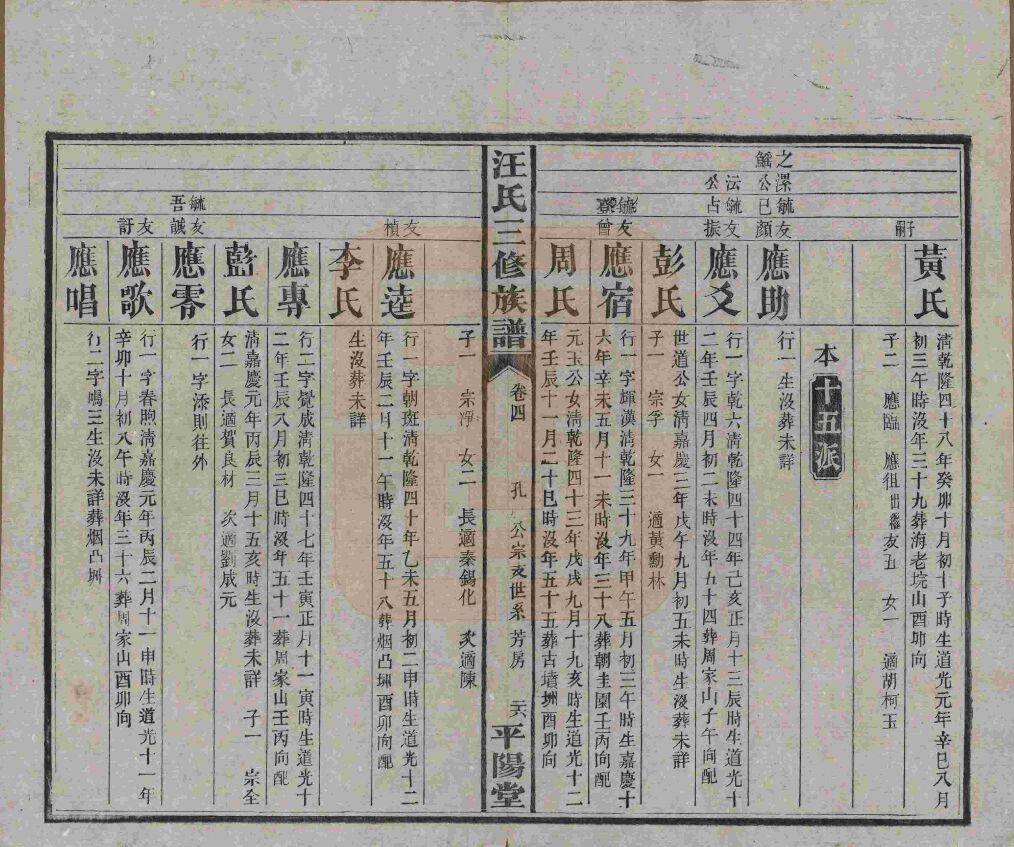 黃氏
淸乾隆四十八年癸卯十月初十子時生道光元年辛巳八月
初三午時歿年三十九葬海老垸山酉卯向
子二 應臨 應徂出繼友丑 女一 適胡柯玉
本十五派
之漯毓友
鰩公巳顏
應助
行一生沒葬未詳
沄毓友
公占振
應爻
行一字乾六淸乾隆四十四年己亥正月十三辰時生道光十
二年壬辰四月初二未時沒年五十四葬周家山子午向配
彭氏
世道公女淸嘉慶三年戊午九月初五未時生沒葬未詳
子一 宗孚 女一 適黃勳林
毓友
曾
應宿
行一字輝漢淸乾隆三十九年甲午五月初三午時生嘉慶十
六年辛未五月十一未時沒年三十八葬朝圭園壬丙向配
周氏
元玉公女淸乾隆四十三年戊戌九月十九亥時生道光十二
年壬辰十一月二十巳時沒年五十五葬古墳坳酉卯向
汪氏三修族譜
卷四 孔 公宗支世系芳房 平陽堂
子一 宗淨 女二 長適秦錫化 次適陳
友楨
應達
行一字朝斑淸乾隆四十年乙未五月初二申時生道光十二
年壬辰二月十一午時沒年五十八葬烟凸坳酉卯向配
李氏
生沒葬未詳
應專
行二字覺成淸乾隆四十七年壬寅正月十一寅時生道光十
二年壬辰八月初三巳時沒年五十一葬周家山壬丙向配
藍氏
淸嘉慶元年丙辰三月十五亥時生沒葬未詳 子一 宗全
女二 長適賀良材 次適劉威元
毓友
吾誠
應零
行一字添則往外
友訏
應歌
行一字春煦淸嘉慶元年丙辰二月十一申時生道光十一年
辛卯十月初八午時沒年三十六葬周家山酉卯向
應唱
行二字鳴三生沒未詳葬烟凸坳